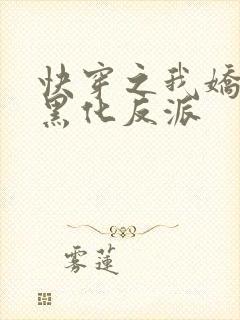 快穿之我嬌
黑化反派
雾蓮